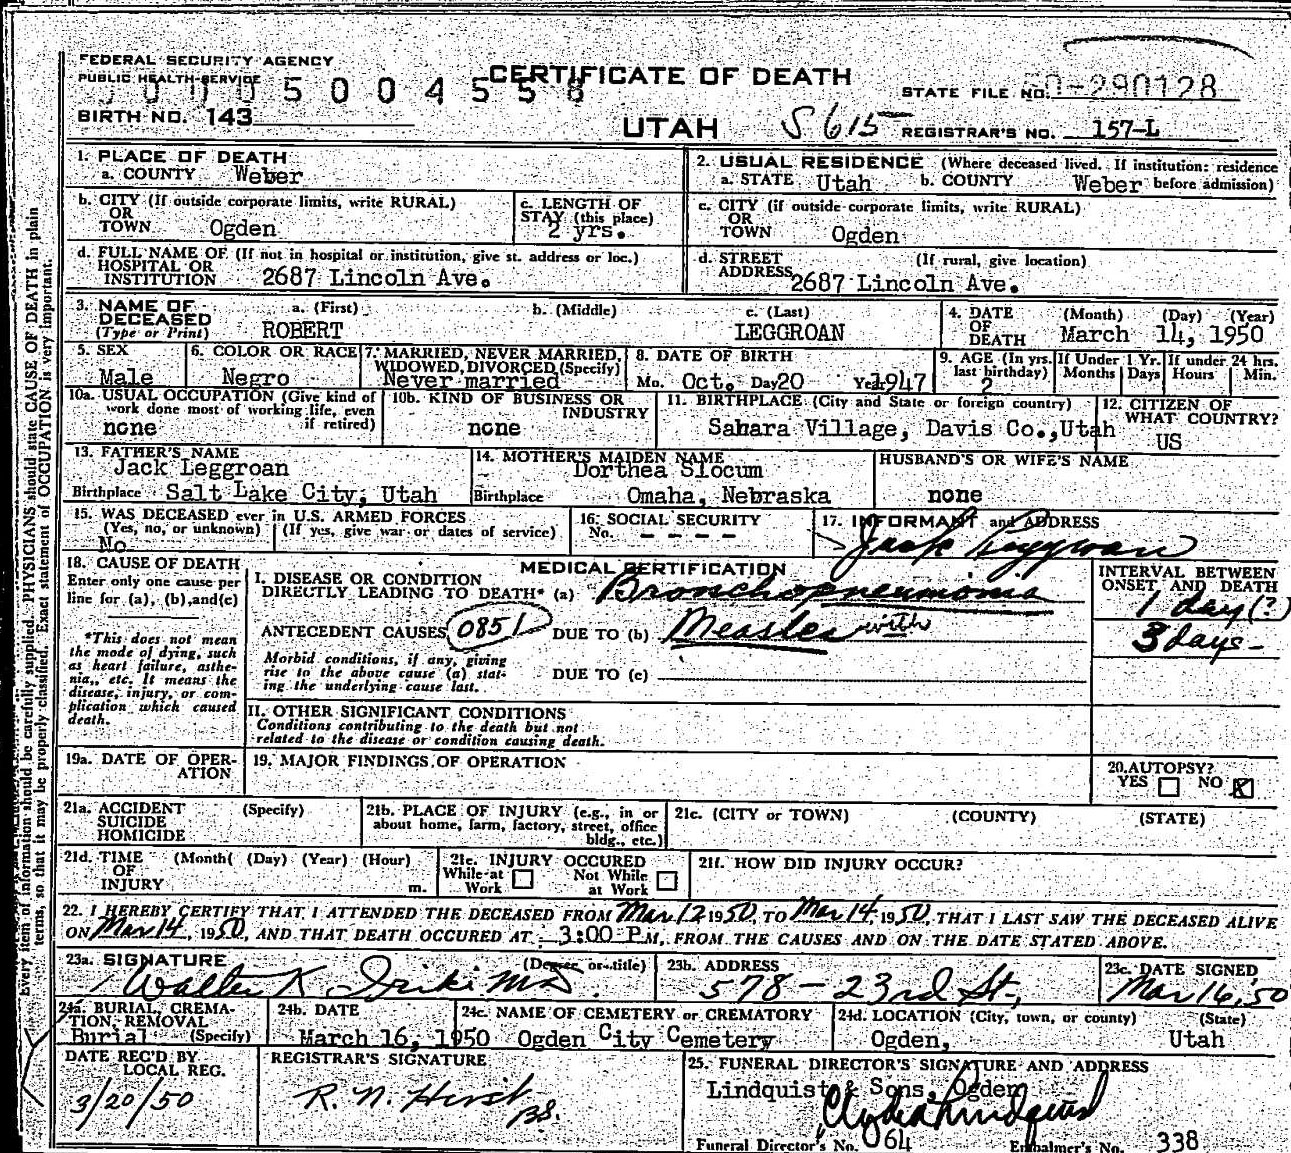 FEDERAL SECURITY AGENCY
PUBLIC HEALTH SERVICE
CERTIFICATE OF DEATH
STATE FILE NO. 50-290128
BIRTH NO. 143
UTAH S615 REGISTRAR'S NO. 157-L
1. PLACE OF DEATH
a. COUNTY Weber
2. USUAL RESIDENCE (Where deceased lived. If institution: residence
a. STATE Utah b. COUNTY Weber before admission)
b. CITY (If outside corporate limits, write RURAL)
OR
TOWN Ogden
c. LENGTH OF
STAY (this place)
2 yrs.
c. CITY (if outside corporate limits, write RURAL)
OR
TOWN Ogden
d. FULL NAME OF (If not in hospital or institution, give st. address or loc.)
HOSPITAL OR
INSTITUTION 2687 Lincoln Ave.
d. STREET (If rural, give location)
ADDRESS 2687 Lincoln Ave.
3. NAME OF a. (First) b. (Middle) c. (Last)
DECEASED
(Type or Print) ROBERT LEGGROAN
4. DATE (Month) (Day) (Year)
OF
DEATH March 14, 1950
5. SEX
Male
6. COLOR OR RACE
Negro
7. MARRIED, NEVER MARRIED,
WIDOWED, DIVORCED (Specify)
Never married
8. DATE OF BIRTH
Mo. Oct. Day 20 Year 1947
9. AGE (In yrs. last birthday)
2
If Under 1 Yr.
Months Days
If under 24 hrs.
Hours Min.
10a. USUAL OCCUPATION (Give kind of
work done most of working life, even
if retired)
none
10b. KIND OF BUSINESS OR
INDUSTRY
none
11. BIRTHPLACE (City and State or foreign country)
Sahara Village, Davis Co., Utah
12. CITIZEN OF
WHAT COUNTRY?
US
13. FATHER'S NAME
Jack Leggroan
Birthplace Salt Lake City, Utah
14. MOTHER'S MAIDEN NAME
Dorthea Slocum
Birthplace Omaha, Nebraska
HUSBAND'S OR WIFE'S NAME
none
15. WAS DECEASED ever in U.S. ARMED FORCES
(Yes, no, or unknown) (If yes, give war or dates of service)
No
16. SOCIAL SECURITY
No. - - - -
17. INFORMANT and ADDRESS
Jack Leggroan
18. CAUSE OF DEATH
Enter only one cause per
line for (a), (b), and (c)
*This does not mean
the mode of dying, such
as heart failure, asthe-
nia, etc. It means the
disease, injury, or com-
plication which caused
death.
MEDICAL CERTIFICATION
I. DISEASE OR CONDITION
DIRECTLY LEADING TO DEATH* (a) Bronchopneumonia
ANTECEDENT CAUSES 0851 DUE TO (b) Measles with
Morbid conditions, if any, giving
rise to the above cause (a) stat-
ing the underlying cause last.
DUE TO (c)
INTERVAL BETWEEN
ONSET AND DEATH
1 day (?)
3 days-
II. OTHER SIGNIFICANT CONDITIONS
Conditions contributing to the death but not
related to the disease or condition causing death.
19a. DATE OF OPER-
ATION
19. MAJOR FINDINGS OF OPERATION
20. AUTOPSY?
YES NO X
21a. ACCIDENT (Specify)
SUICIDE
HOMICIDE
21b. PLACE OF INJURY (e.g., in or
about home, farm, factory, street, office
bldg., etc.)
21c. (CITY or TOWN) (COUNTY) (STATE)
21d. TIME (Month( (Day) (Year) (Hour)
OF
INJURY m.
21e. INJURY OCCURED
While at Work Not While at Work
21f. HOW DID INJURY OCCUR?
22. I HEREBY CERTIFY THAT I ATTENDED THE DECEASED FROM Mar 12 1950, TO Mar 14 1950, THAT I LAST SAW THE DECEASED ALIVE
ON Mar 14, 1950, AND THAT DEATH OCCURED AT 3:00 P.M., FROM THE CAUSES AND ON THE DATE STATED ABOVE.
23a. SIGNATURE (Degree or title)
Walter K. Iriki MD.
23b. ADDRESS
578 - 23rd St.,
23c. DATE SIGNED
Mar 16, 50
24a. BURIAL, CREMA-
TION, REMOVAL
Burial (Specify)
24b. DATE
March 16, 1950
24c. NAME OF CEMETERY or CREMATORY
Ogden City Cemetery
24d. LOCATION (City, town, or county) (State)
Ogden, Utah
DATE REC'D BY
LOCAL REG.
3/20/50
REGISTRAR'S SIGNATURE
R. N. Hirst
BS.
25. FUNERAL DIRECTOR'S SIGNATURE AND ADDRESS
Lindquist & Sons, Ogden
Clyde Lindquist
Funeral Director's No. 064 Embalmer's No. 338
Every item of information should be carefully supplied. PHYSICIANS should state CAUSE OF DEATH in plain
terms, so that it may be properly classified. Exact statement of OCCUPATION is very important.